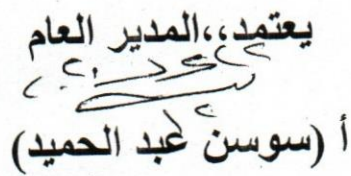 يعتمد،،المدير العام
أ (سوسن عبد الحميد)